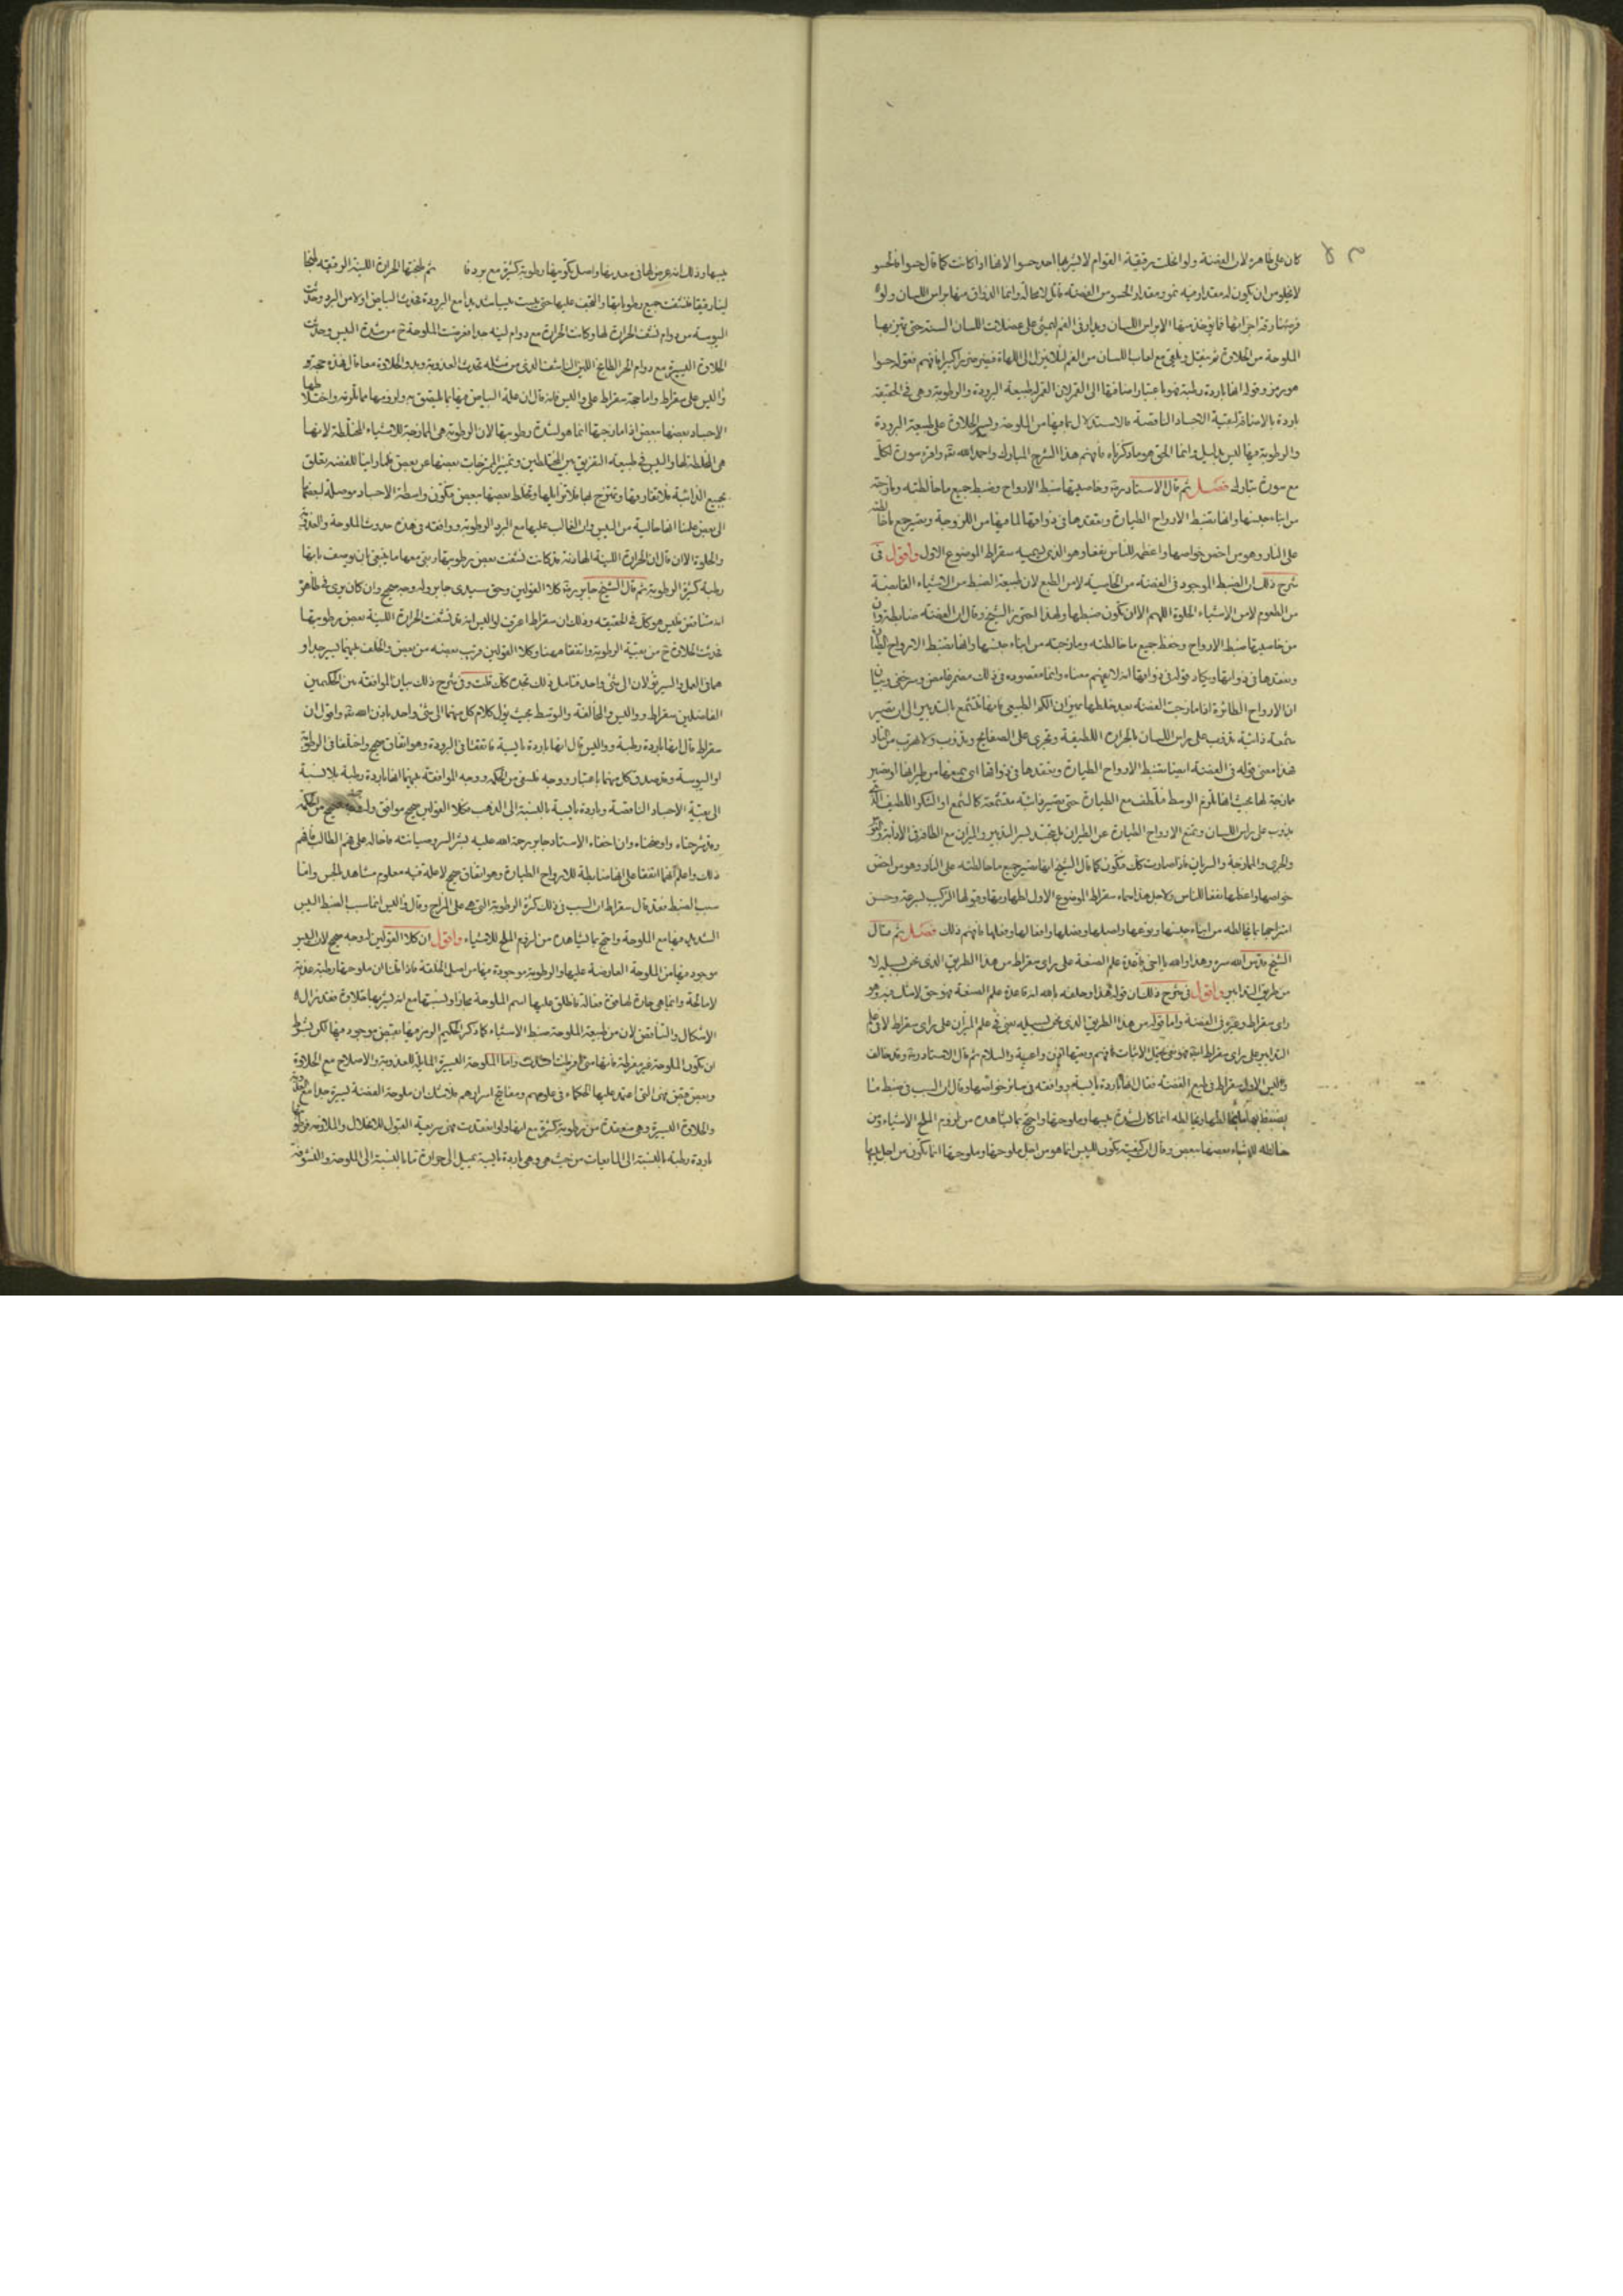 كان على ظاهره لان الفضة ولو انحلت رقيقة القوام لا يشربها احد حسوا الا انها اذا كانت كما قال حسوا فالحسو
لا يخلو من ان يكون له مقدار فيه نمو ومقدار الحسو من الفضة قاتل لا محالة وانما الذواق منها براس اللسان ولو
فرضنا رقة اجزائها فما يؤخذ منها الا براس اللسان ويدار في الفم ليمشي على عضلات اللسان الستة حتى يتميز بها
الملوحة من الحلاوة ثم يتفل ويلقى مع لعاب اللسان من الفم لئلا ينزل الى اللهاة فيضر ضررا كبيرا فافهم فقوله حسوا
هو رمز وقوله انها باردة رطبة فهو باعتبار اضافتها الى القمر لان القمر له طبيعة البرودة والرطوبة وهي في الحقيقة
باردة بالاضافة لبقية الاجساد الناقصة فالاستدلال بما فيها من الملوحة ويسير الحلاوة على طبيعة البرودة
والرطوبة فيها ليس بدليل وانما الحق هو ما ذكرناه فافهم هذا الشرح المبارك واحمد الله تعالى واقرء سورة الملك
مع سورة تبارك فصل ثم قال الاستاذ رحمه وخاصيتها ضبط الارواح وضبط جميع ما خالطته ومازجته
من ابناء جنسها وانها تضبط الارواح الطيارة وتعقدها في ذواتها لما فيها من اللزوجة وتصير جميع ما خالطته
على النار وهو من اخص خواصها واعظمه للناس نفعا وهو الذي يسميه سقراط الموضوع الاول واقول في
شرح ذلك ان الضبط الموجود في الفضة من الخاصية لا من الطبع لان طبيعة الضبط من الاشياء القابضة
من الطعوم لا من الاشياء الحلوة اللهم الا ان تكون ضبطها ولهذا احترز الشيخ وقال ان الفضة ضابطة وان
من خاصيتها ضبط الارواح وحفظ جميع ما خالطته ومازجته من ابناء جنسها وانها تضبط الارواح الطيارة
وتعقدها في ذواتها ويكاد قوله في ذواتها انه لا يفهم معناه وانما مقصوده في ذلك مضمر غامض وسر خفي وبيان
ان الارواح الطائرة اذا مازجت الفضة بعد خلطها بميزان الكم الطبيعي فانها تتشمع بالتدبير الى ان تصير
شمعة ذائبة تذوب على راس اللسان بالحرارة اللطيفة وتجري على الصفايح وتذوب ولا تهرب من النار
فهذا معنى قوله في الفضة ايضا تضبط الارواح الطيارة وتعقدها في ذواتها اي يمنعها من طيرانها او تصير
مازجة لها بحيث انها تلزم الوسط فتلطف مع الطيارة حتى تصير ذائبة متشمعة كالشمع او السكر اللطيف الذي
يذوب على راس اللسان وتمنع الارواح الطيارة عن الطيران بل تنعقد بسر التدبير والميزان مع الطاهر في الاذابة والذوب
والجري والملوحة والسريان فاذا صارت كذلك فتكون كما قال الشيخ انها تصير جميع ما خالطته على النار وهو من اخص
خواصها واعظمها نفعا للناس ولاجل هذا سماه سقراط الموضوع الاول لطهارتها وقبولها التركيب بسرعة وحسن
امتزاجها بما يخالطه من ابناء جنسها ونوعها واصلها وفصلها وافعالها وفعلها فافهم ذلك فصل ثم قال
الشيخ قدس الله سره وهذا والله يا اخي قاعدة علم الصنعة على راي سقراط من هذا الطريق الذي نحن بسبيله لا
من طريق التدابير واقول في شرح ذلك ان قوله هذا وحلفه بالله انه قاعدة علم الصنعة فهو حق لا شك فيه وهو
راي سقراط وغيره في الفضة واما قوله من هذا الطريق الذي نحن بسبيله يعني في علم الميزان على راي سقراط لا في علم
التدابير على راي سقراط ايضا فهو شيء يحتمل الاثبات فافهم وميزها اذن واعية والسلام ثم قال الاستاذ رحمه وقد خالف
واليس الاول سقراط في طبع الفضة فقال انها باردة يابسة ووافقه في سائر خواصها وقال ان السبب في ضبط ما
يخالطها ويخالطه انما كان لشدة يبسها وملوحتها واحتج بما يشاهد من لزوم الملح الاشياء ومن
مخالطته للاشياء بعضها ببعض وقال ان كيفية تكون اليبس انما هو من اجل ملوحتها وملوحتها انما تكون من اجل يبسها
يبسها وذلك انه عرض لها في معدنها واصل تكوينها رطوبة كثيرة مع برد ثم طبختها الحرارة اللينة الرقيقة طبخا
لينا رقيقا فنشفت جميع رطوباتها والتحف عليها حتى يبست يبسا شديدا مع البرودة فحدث البياض اولا من البرد وحدثت
اليبوسة من دوام نشف الحرارة لها وكانت الحرارة مع دوام لينة جدا فعرضت الملوحة من شدة اليبس وحدثت
الحلاوة اليسيرة مع دوام الحر الطابخ اللين الناشف الذي من مثله تحدث العذوبة ويبدو الحلاوة معا قال فهذه حجة
واليس على سقراط واما حجة سقراط على واليس فانه قال ان علة البياض فيها بما لا يتحقق به ولونها ما تلونه واختلاطها
الاجساد بعضها ببعض اذا مازجتها انما هو لشدة رطوبتها لان الرطوبة هي المازجة للاشياء المختلطة لانها
هي المخلطة لها واليبس في طبيعته التفريق بين المختلطين وتميز الممتزجات بعضها عن بعض فلما راينا للفضة تعلق
بجميع الذائبة فلا تفارقها وتمتزج لها فلا تزايلها وتخلط بعضها ببعض فتكون واسطة الاجساد موصلة لبعضها
الى بعض علمنا انها خالية من اليبس وان الغالب عليها مع البرد الرطوبة ووافقه في هذه حدوث الملوحة والعذوبة
والحلوة الا ان قال ان الحرارة اللينة الهادئة قد كانت نشفت بعض رطوبتها وبقي معها ما ينبغي ان يوصف بانها
رطبة كثيرة الرطوبة ثم قال الشيخ جابر رحمه كلا القولين وحق سيدي جابر وله وجه صحيح وان كان يرى في ظاهره
انه متناقض فليس هو كذلك في الحقيقة وذلك ان سقراط اعترف لواليس انه قد نشفت الحرارة اللينة بعض رطوبتها
فحدثت الحلاوة من بقية الرطوبة واتفقا ههنا وكلا القولين قريب بعضه من بعض والخلف بينهما يسير جدا و
هما في العمل والسير يؤولان الى شيء واحد فتامل ذلك تجده كذلك قلت وفي شرح ذلك بيان الموافقة بين الحكيمين
الفاضلين سقراط وواليس والمخالفة والتوسط بحيث يؤول كلام كل منهما الى شيء واحد باذن الله تعالى واقول ان
سقراط قال انها باردة رطبة وواليس قال انها باردة يابسة فاتفقا في البرودة وهو اتفاق صحيح واختلفا في الرطوبة
او اليبوسة وقد صدق كل منهما باعتبار ووجه فلسفي من الحكمة ووجه الموافقة بينهما انها باردة رطبة بلا نسبة
الى بقية الاجساد الناقصة وباردة يابسة بالنسبة الى الذهب فكلا القولين صحيح موافق صحيح من الحكمة
وقد شرحناه واوضحناه وان اخفاه الاستاد جابر رحمة الله عليه بستر السر وصيانته فاحاله على فهم الطالب فافهم
ذلك واعلم انهما اتفقا على انها ضابطة للارواح الطيارة وهو اتفاق صحيح لا علة فيه معلوم مشاهد للحس واما
سبب الضبط فقد قال سقراط ان السبب في ذلك كثرة الرطوبة التي هي على المزاج وقال واليس انما سبب الضبط اليبس
الشديد فيها مع الملوحة واحتج بما يشاهده من لزوم الملح للاشياء واقول ان كلا القولين له وجه صحيح لان اليبس
موجود فيها من الملوحة العارضة عليها والرطوبة موجودة فيها من اصل الخلقة فاذا قلنا ان ملوحتها رطبة عذبة
لا مالحة وانما هي حارة لها قوة فعالة فاطلق عليها اسم الملوحة مجازا ونسبتها مع انه يشربها حلاوة فقد زال
الاشكال والتناقض لان من طبيعة الملوحة ضبط الاشياء كما ذكر الحكيم الرمز فيها بعض موجود فيها لكن بشرط
ان تكون الملوحة غير مفرطة فانها متى افرطت اهلكت واما الملوحة اليسيرة المائلة للعذوبة والاصلاح مع الحلاوة
وبعض قبض فهي التي اعتمد عليها الحكماء في علومهم ومفاتيح اسرارهم فلا شك ان ملوحة الفضة يسيرة جدا مع العذوبة
والحلاوة اليسيرة وهي منعقدة من رطوبة كثيرة مع انها ولو انعقدت فهي سريعة القبول للانحلال والملاونة فرطوبتها
باردة رطبة بالنسبة الى المائعيات من حيث هي وهي باردة يابسة تميل الى حرارة ما بالنسبة الى الملوحة والنشوفة